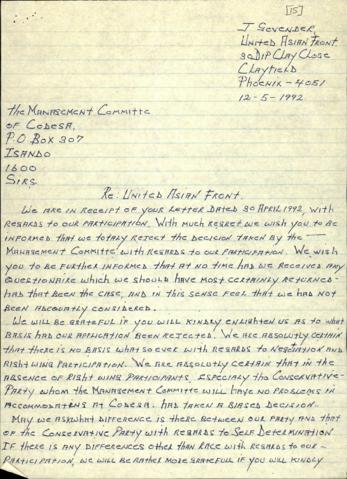 [15]
J GOVENDER,
UNITED ASIAN FRONT
30 DIP CLAY CLOSE
CLAYFIELD
PHOENIX - 4051
12-5-1992
The MANAGEMENT COMMITTE
OF CODESA,
P.O BOX 307
ISANDO
1600
SIRS
RE: UNITED ASIAN FRONT.
WE ARE IN RECEIPT OF YOUR LETTER DATED 30 APRIL 1992, WITH
REGARDS TO OUR PARTICIPATION. WITH MUCH REGRET WE WISH YOU TO BE
INFORMED THAT WE TOTALY REJECT THE DECISION TAKEN BY THE —
MANAGEMENT COMMITTE WITH REGARDS TO OUR PARTICIPATION. WE WISH
YOU TO BE FURTHER INFORMED THAT AT NO TIME HAD WE RECEIVED ANY
QUESTIONAIRE WHICH WE SHOULD HAVE MOST CERTAINLY RETURNED -
HAD THAT BEEN THE CASE, AND IN THIS SENSE FEEL THAT WE HAD NOT
BEEN ADEQUATLY CONSIDERED.
WE WILL BE GRATEFUL IF YOU WILL KINDLY ENLIGHTEN US AS TO WHAT
BASIS HAD OUR APPLICATION BEEN REJECTED. WE ARE ABSOLUTELY CERTAIN
THAT THERE IS NO BASIS WHATSOEVER WITH REGARDS TO NEGOTIATION AND
RIGHT WING PARTICIPATION. WE ARE ABSOLUTELY CERTAIN THAT IN THE
ABSENCE OF RIGHT WING PARTICIPANTS, ESPECIALY THE CONSERVATIVE-
PARTY WHOM THE MANAGEMENT COMMITTE WILL HAVE NO PROBLEMS IN
ACCOMMODATING AT CODESA. HAD TAKEN A BIASED DECISION.
MAY WE ASK WHAT DIFFERENCE IS THERE BETWEEN OUR PARTY AND THAT
OF THE CONSERVATIVE PARTY WITH REGARDS TO SELF DETERMINATION.
IF THERE IS ANY DIFFERENCES OTHER THAN RACE WITH REGARDS TO OUR -
PARTICIPATION, WE WILL BE RATHER MORE GRATEFUL IF YOU WILL KINDLY